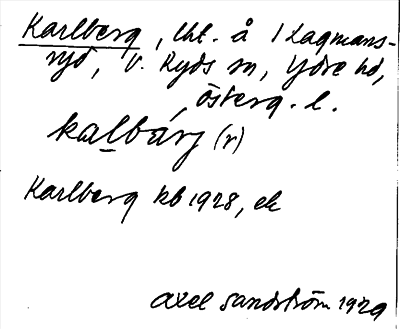 Karlberg, lht. å 1 Lagmans-
ryd, V. Ryds sn, Ydre hd,
österg. l.
kalbárj (r)
Karlberg kb 1928, ek
Axel Sandström 1929